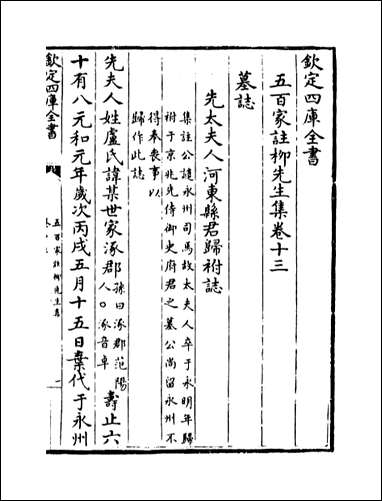 欽定四庫全書
五百家註柳先生集卷十三
墓誌
先太夫人河東縣君歸祔誌
集註公謫永州司馬故太夫人卒于永明年歸
祔于京兆先侍御史府君之墓公尚留永州不
得奉喪事以
歸作此誌
先夫人姓盧氏諱某世家涿郡孫曰涿郡范陽人○涿音卓壽止六
十有八元和元年歲次丙戌五月十五日棄代于永州
欽定四庫全書
五百家註柳先生集
一